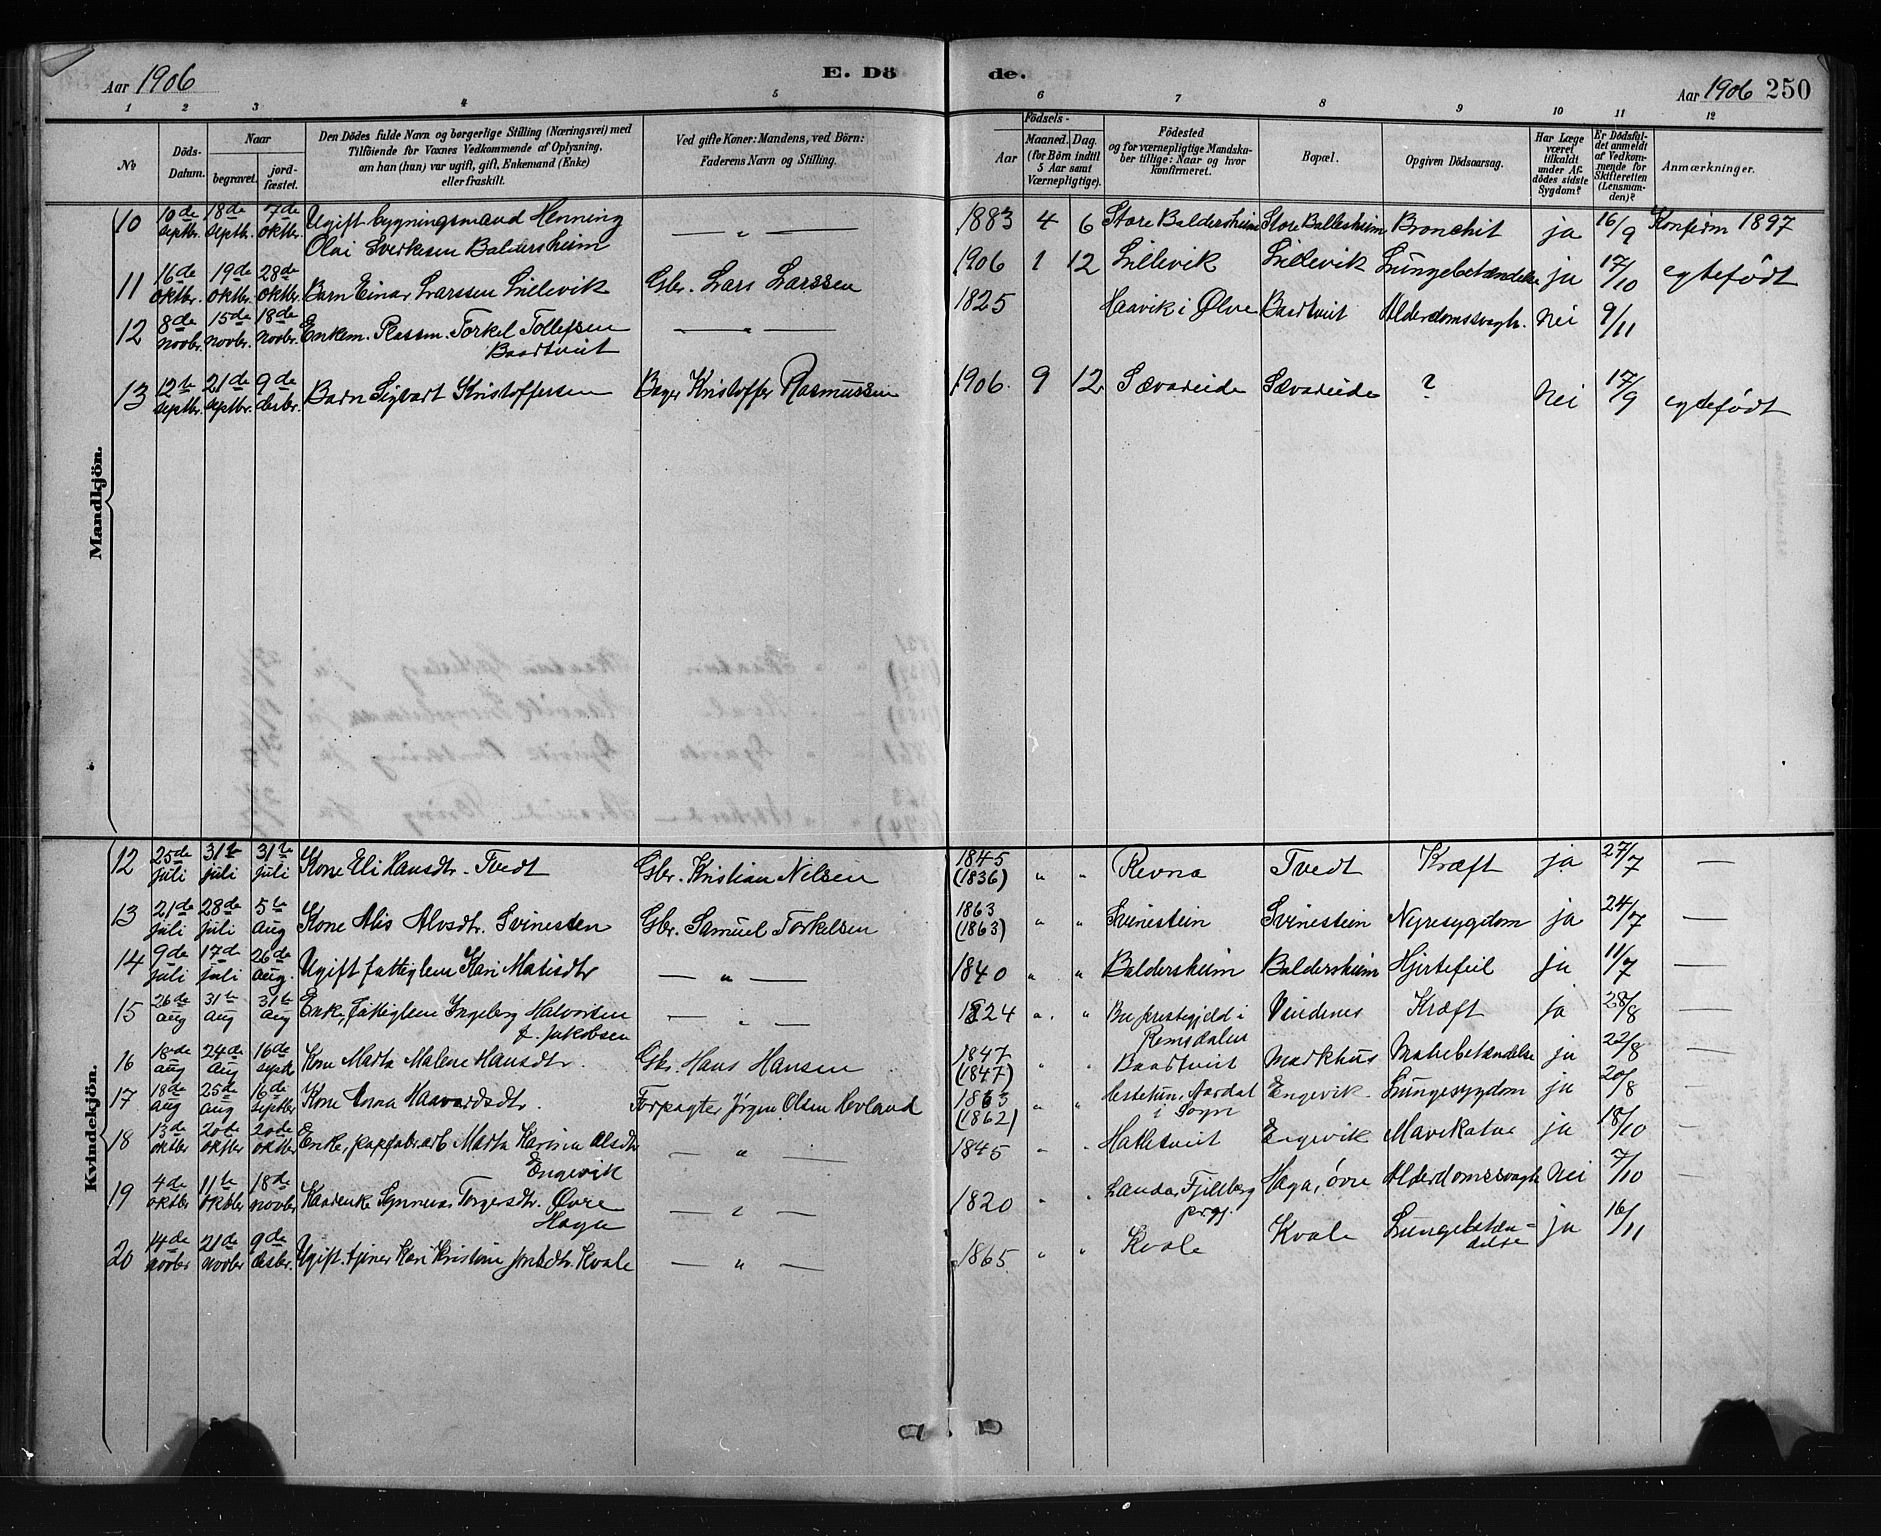 Aar 1906 E. Dö de. Aar 1906 250
1 2 3 4 5 6 7 8 9 10 11 12
№
Döds-Datum.
Naar
begravet.
jord-fæstet.
Den Dödes fulde Navn og borgerlige Stilling (Næringsvei) med
Tilföiende for Voxnes Vedkommende af Oplysning,
om han (hun) var ugift, gift, Enkemand (Enke)
eller fraskilt.
Ved gifte Koner: Mandens, ved Börn:
Faderens Navn og Stilling.
Födsels-
Aar
Maaned. Dag.
(for Börn indtil
5 Aar samt
Værnepligtige).
Födested
og for værnepligtige Mandska-
ber tillige: Naar og hvor
konfirmeret.
Bopæl.
Opgiven Dödsaarsag.
Har Læge
været
tilkaldt
under Af-
dödes sidste
Sygdom?
Er Dödsfal-
det anmeldt
af Vedkom-
mende for
Skifteretten
(Lensman-
den)?
Anmærkninger.
Mandkjön.
10 10de septbr. 18de septbr. 7de oktbr. Ugift bygningsmand Henning — „ — 1883 4 6 Store Baldersheim Store Baldersheim Bronchit ja 16/9 Konfirm 1897
Olai Sverkesen Baldersheim
11 16de oktbr. 19de oktbr. 28de oktbr. Barn Einar Larssen Lillevik Gbr. Lars Larssen 1906 1 12 Lillevik Lillevik Lungebetændelse ja 17/10 egtefödt
12 8de novbr. 15de novbr. 18de novbr. Enkem. Plassm. Torkel Tollefsen — „ — 1825 Haavik i Ølve Baartveit Alderdomssvagh. Nei 9/11
Baartveit
13 12te septbr. 21de septbr. 9de desbr. Barn Sigvart Kristoffersen Bager Kristoffer Rasmussen 1906. 9 12. Sævareide Sævareide ? Nei 17/9 egtefödt
Kvindekjön.
12 25de juli 31te juli 31te juli Kone Eli Hansdtr. Tvedt Gbr. Kristian Nilsen 1845 (1836) „ „ Revna Tvedt Kræft ja 27/7 —
13 21de juli 28de juli 5te aug Kone Alis Alvsdtr. Svinesten Gbr. Samuel Torkelsen 1863 (1863) „ „ Svinestein Svinestein Nyresygdom ja 24/7 —
14 9de juli 17de juli 26de aug. Ugift fattiglem Kari Matisdtr — „ — 1840 „ „ Baldersheim Baldersheim Hjertefeil ja 11/7 —
15 26de aug 31te aug 31te aug Enke, fattiglem Ingeborg Halvorsen — „ — 1824 „ „ Bu prestegjeld i Vindenes Kræft ja 28/8 —
f. Jakobsen Romsdalen
16 18de aug 24de aug 16de septr Kone Marta Malene Hansdtr. Gbr. Hans Hansen 1847 (1847) „ „ Baartveit Markhus Mavebetændelse ja 22/8 —
17 18de aug 25de aug 16de septbr Kone Anna Haavardsdtr. Forpagter Jørgen Olsen Hovland 1863 (1862) „ „ Aardal Engevik. Lungesygdom ja 20/8 —
i Sogn
18 13de oktbr 20de oktbr 20de oktbr Enke, Marta Karina Olsdtr — „ — 1845 „ Engevik Mavekatar ja 18/10 —
Engevik
19 4de oktbr 11te oktbr 18de novbr Torgersdtr. Øvre — „ — 1820 „ „ Landa, Fjeldberg Haga, øvre Alderdomssvagh Nei 7/10 —
Haga prgj.
20 14de novbr 21de novbr 9de desbr. Ugift. tjener Kari Kristine Kvale — „ — 1865. „ „ Kvale Kvale Lungebetæn- ja 16/11 —
delse